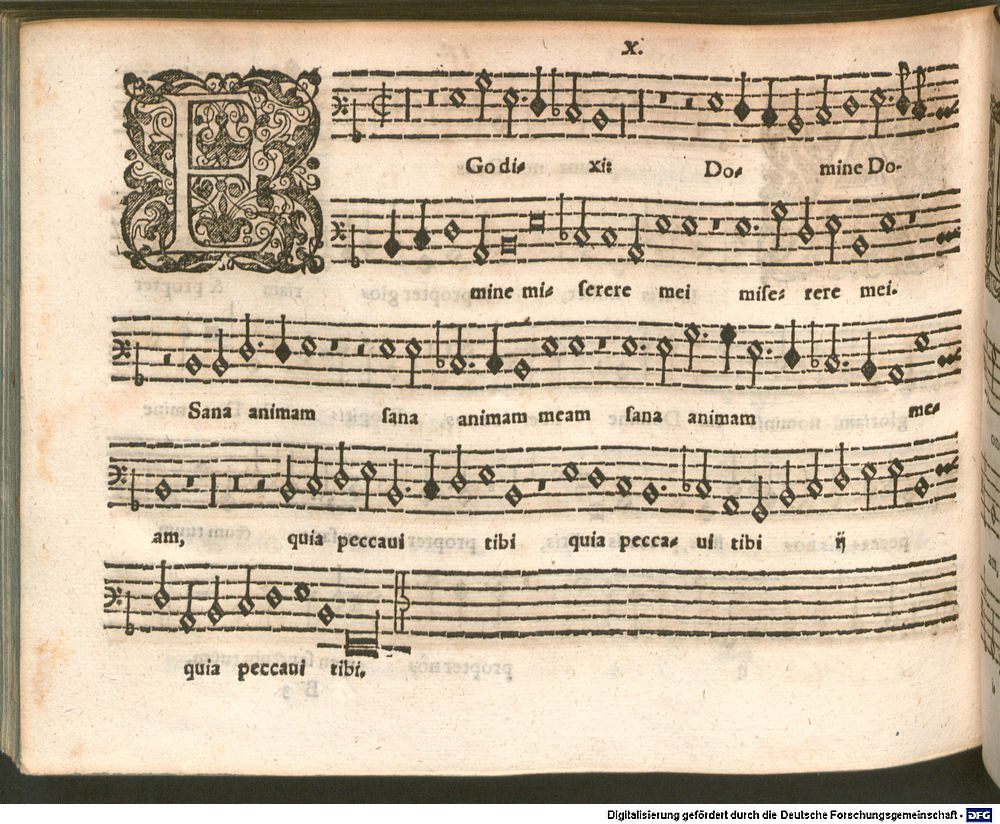 X.
EGo di- xi: Do- mine Do-
mine mi- serere mei mise- rere mei.
Sana animam sana animam meam sana animam me-
am, quia peccavi tibi quia pecca- ui tibi ij
quia peccaui tibi.
Digitalisierung gefördert durch die Deutsche Forschungsgemeinschaft - DFG